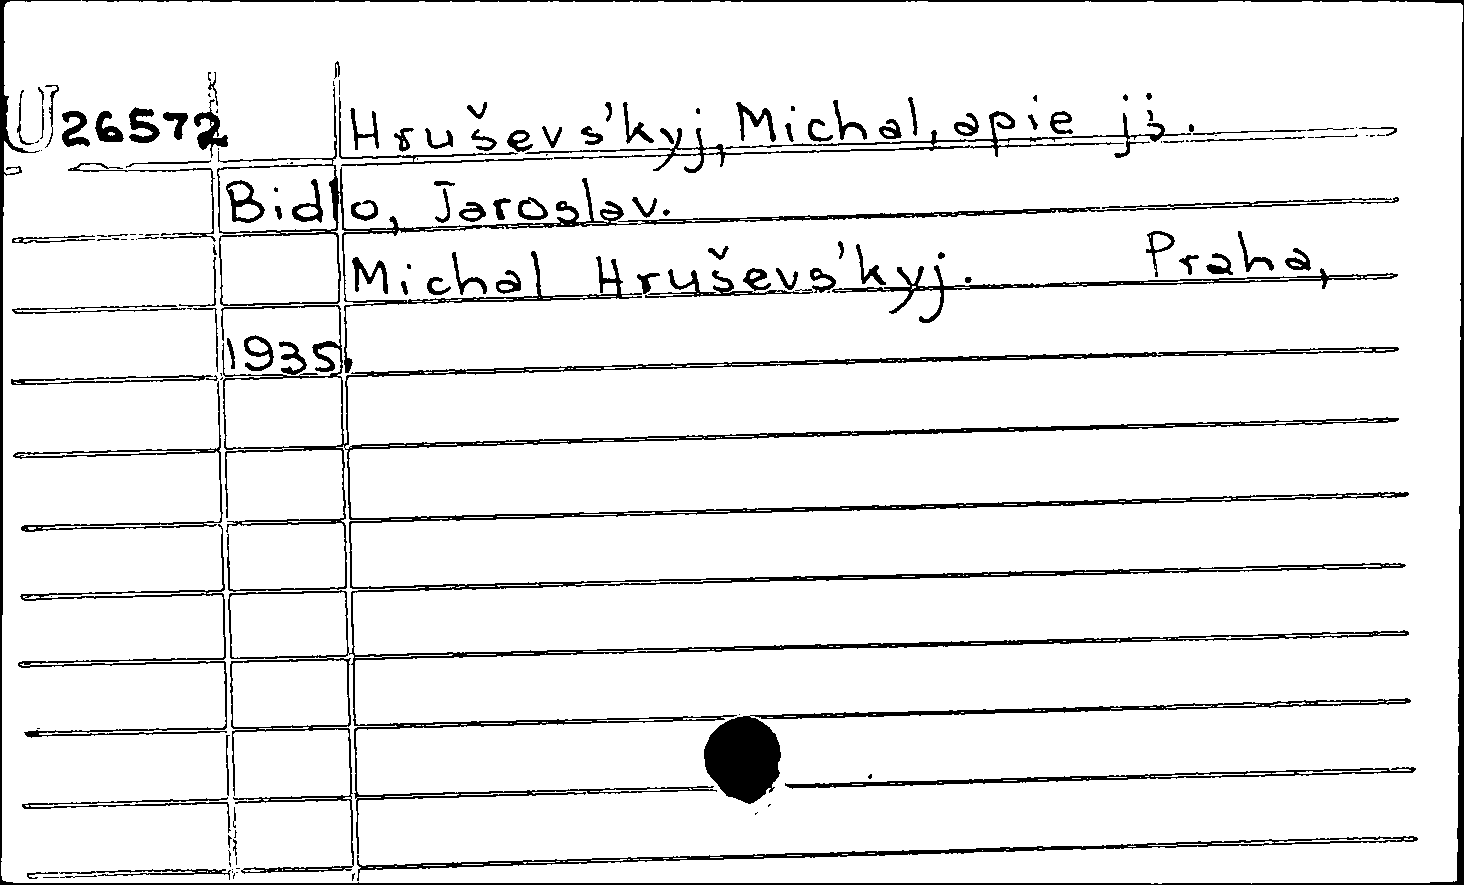 U26572 Hruševs'kyj, Michal, apie jį.
Bidlo, Jaroslav.
Michal Hruševs'kyj. Praha,
1935.